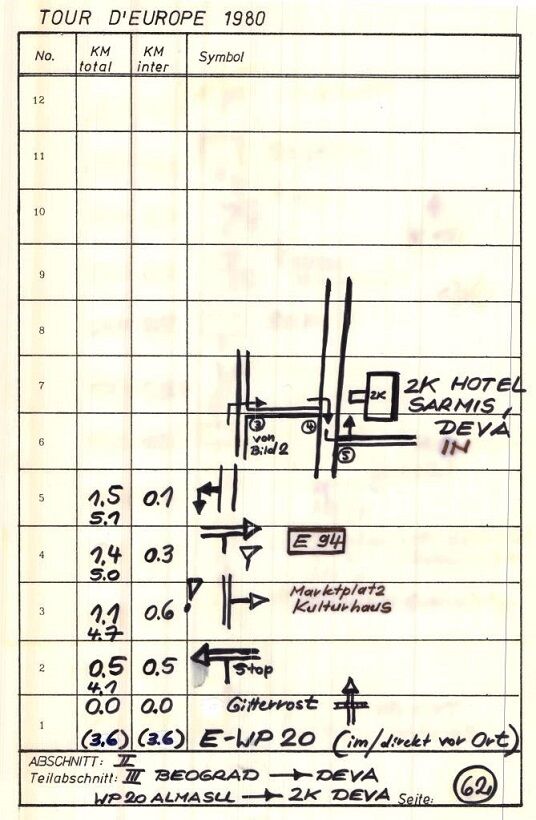 TOUR D'EUROPE 1980
No. KM total KM inter Symbol
12
11
10
9
8
7 2K 2K HOTEL
SARMIS
6 ③ von Bild 2 ④ ⑤ DEVA
IN
5 1,5 0.1
5.1
4 1,4 0.3 E 94
5.0
3 1,1 0.6 ! Marktplatz
4.7 Kulturhaus
2 0.5 0.5 Stop
4.1
0.0 0.0 Gitterrost
1 (3,6) (3.6) E-WP 20 (im/direkt vor Ort)
ABSCHNITT: II
Teilabschnitt: III BEOGRAD → DEVA
WP 20 ALMASU → 2K DEVA Seite: 62